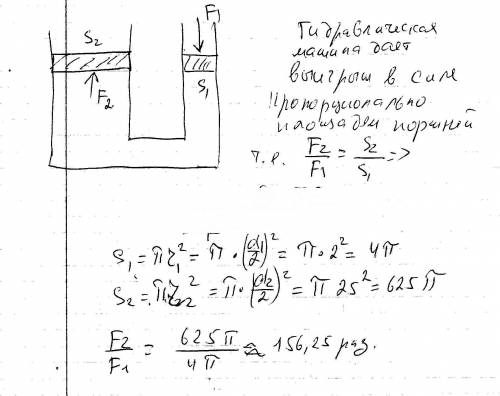 S₂
F₁
F₂
S₁
Гидравлическая
машина дает
выигрыш в силе
пропорционально
площадям поршней
т.е. F₂/F₁ = S₂/S₁ =>
S₁ = πr₁² = π · (d₁/2)² = π · 2² = 4π
S₂ = πr₂² = π · (d₂/2)² = π 25² = 625π
F₂/F₁ = 625π/4π ≈ 156,25 раз.